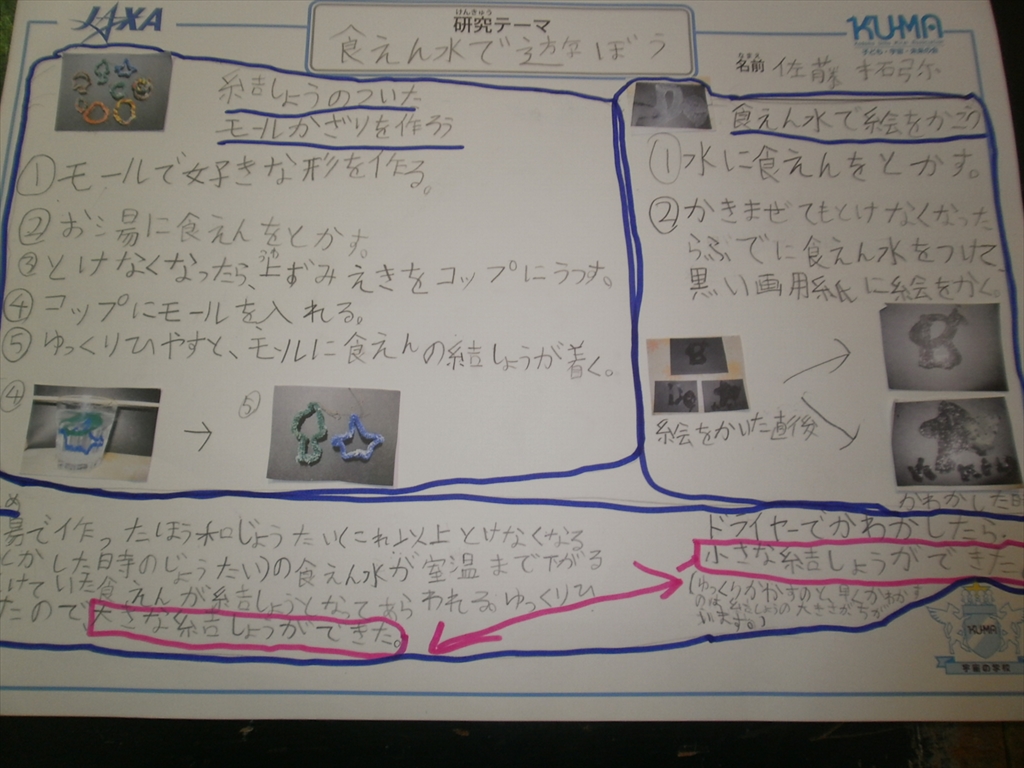 JAXA
研究テーマ
けんきゅう
食えん水で遊ぼう
KUMA
子ども・宇宙・未来の会
名前
なまえ
佐藤
結しょうのついた
モールかざりを作ろう
①モールで好きな形を作る。
②お湯に食えんをとかす。
③とけなくなったら、上ずみえきをコップにうつす。
うわ
④コップにモールを入れる。
⑤ゆっくりひやすと、モールに食えんの結しょうが着く。
④
→
⑤
食えん水で絵をかこう
①水に食えんをとかす。
②かきまぜてもとけなくなった
らふでに食えん水をつけて、
黒い画用紙に絵をかく。
絵をかいた直後
かわかした
湯で作ったほう和じょうたい(これ以上とけなくなる
とかした時のじょうたい)の食えん水が室温まで下がる
けていた食えんが結しょうとなってあらわれる。ゆっくりひ
たので大きな結しょうができた。
ドライヤーでかわかしたら、
小さな結しょうができた。
(ゆっくりかわかすのと、早くかわかす
のは、結しょうの大きさがちが
います。)
KUMA
宇宙の学校